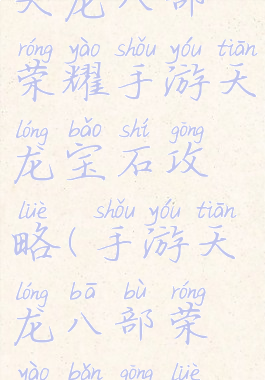 天龙八部
róng yào shǒu yóu tiān
荣耀手游天
lóng bǎo shí gōng
龙宝石攻
lüè shǒu yóu tiān
略(手游天
lóng bā bù róng
龙八部荣
yào bǎn gōng lüè